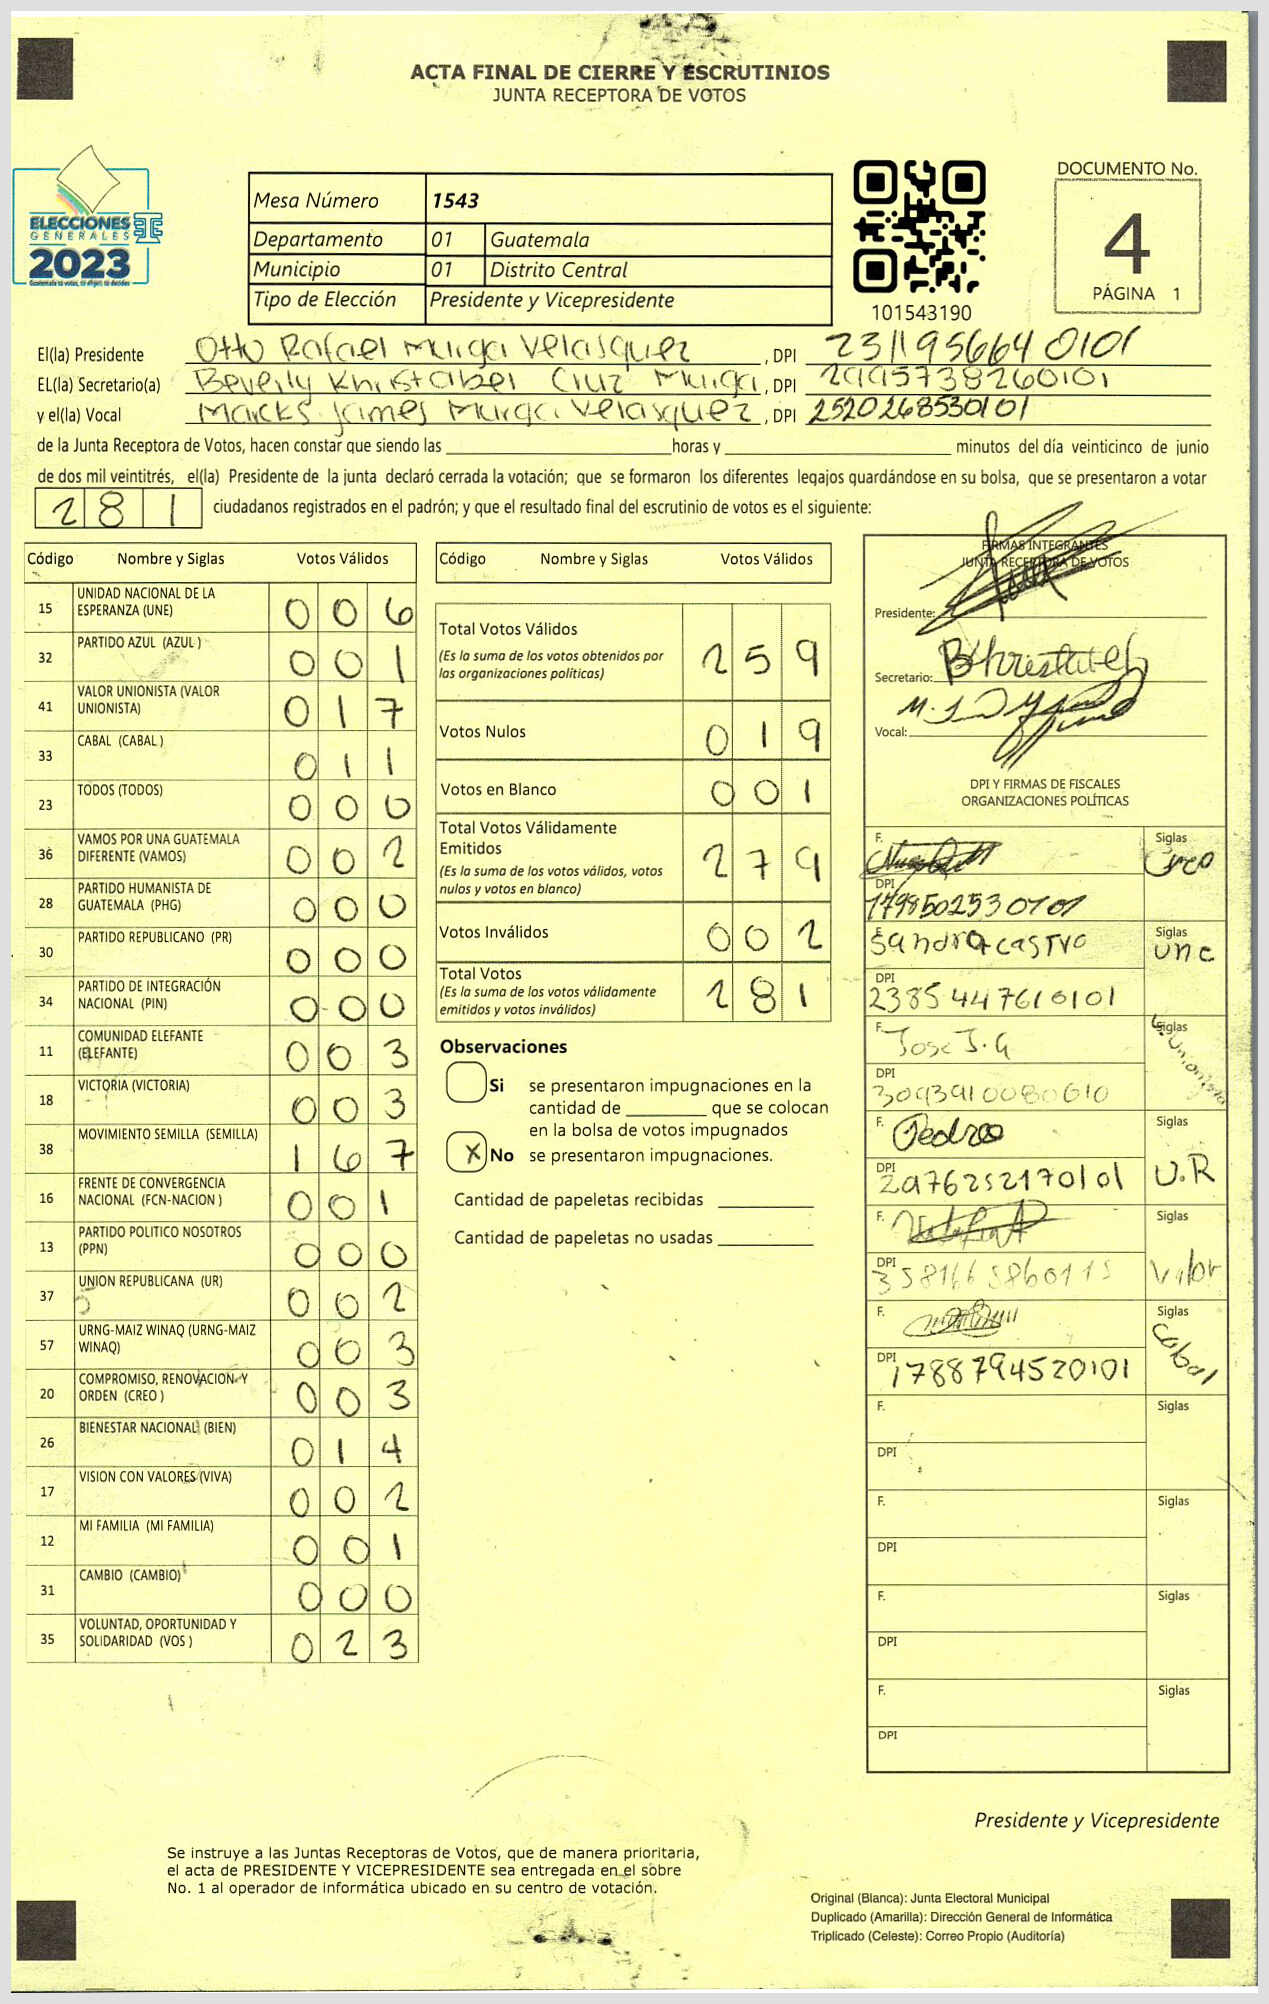 ACTA FINAL DE CIERRE Y ESCRUTINIOS
JUNTA RECEPTORA DE VOTOS
ELECCIONES
GENERALES
2023
Mesa Número 1543
Departamento 01 Guatemala
Municipio 01 Distrito Central
Tipo de Elección Presidente y Vicepresidente
101543190
DOCUMENTO No.
4
PÁGINA 1
El(la) Presidente Otto Rafael Murga Velasquez , DPI 2311956640101
EL(la) Secretario(a) Beverly Khristabel Cruz Murga , DPI 2995738260101
y el(la) Vocal Marcks James Murga Velasquez , DPI 2520268530101
de la Junta Receptora de Votos, hacen constar que siendo las ____ horas y ____ minutos del día veinticinco de junio
de dos mil veintitrés, el(la) Presidente de la junta declaró cerrada la votación; que se formaron los diferentes legajos guardándose en su bolsa, que se presentaron a votar
281 ciudadanos registrados en el padrón; y que el resultado final del escrutinio de votos es el siguiente:
Código Nombre y Siglas Votos Válidos
15 UNIDAD NACIONAL DE LA ESPERANZA (UNE) 006
32 PARTIDO AZUL (AZUL ) 001
41 VALOR UNIONISTA (VALOR UNIONISTA) 017
33 CABAL (CABAL ) 011
23 TODOS (TODOS) 000
36 VAMOS POR UNA GUATEMALA DIFERENTE (VAMOS) 002
28 PARTIDO HUMANISTA DE GUATEMALA (PHG) 000
30 PARTIDO REPUBLICANO (PR) 000
34 PARTIDO DE INTEGRACIÓN NACIONAL (PIN) 000
11 COMUNIDAD ELEFANTE (ELEFANTE) 003
18 VICTORIA (VICTORIA) 003
38 MOVIMIENTO SEMILLA (SEMILLA) 167
16 FRENTE DE CONVERGENCIA NACIONAL (FCN-NACION ) 001
13 PARTIDO POLITICO NOSOTROS (PPN) 000
37 UNION REPUBLICANA (UR) 002
57 URNG-MAIZ WINAQ (URNG-MAIZ WINAQ) 003
20 COMPROMISO, RENOVACION Y ORDEN (CREO ) 003
26 BIENESTAR NACIONAL (BIEN) 014
17 VISION CON VALORES (VIVA) 002
12 MI FAMILIA (MI FAMILIA) 001
31 CAMBIO (CAMBIO) 000
35 VOLUNTAD, OPORTUNIDAD Y SOLIDARIDAD (VOS ) 023
Código Nombre y Siglas Votos Válidos
Total Votos Válidos 259
(Es la suma de los votos obtenidos por
las organizaciones politicas)
Votos Nulos 019
Votos en Blanco 001
Total Votos Válidamente
Emitidos 279
(Es la suma de los votos válidos, votos
nulos y votos en blanco)
Votos Inválidos 002
Total Votos 281
(Es la suma de los votos válidamente
emitidos y votos inválidos)
Observaciones
Si se presentaron impugnaciones en la
cantidad de ____ que se colocan
en la bolsa de votos impugnados
X No se presentaron impugnaciones.
Cantidad de papeletas recibidas
Cantidad de papeletas no usadas
FIRMAS INTEGRANTES
JUNTA RECEPTORA DE VOTOS
Presidente:
Secretario: BKhristabel
Vocal:
DPI Y FIRMAS DE FISCALES
ORGANIZACIONES POLÍTICAS
F. Siglas Creo
DPI 1798502530101
F. Sandra Castro Siglas Une
DPI 2385447610101
F. Jose J.G Siglas Unionista
DPI 3093910080610
F. Pedro Siglas U.R
DPI 2976252170101
F. Siglas Valor
DPI
F. Siglas Cabal
DPI 1788794520101
F. Siglas
DPI
F. Siglas
DPI
F. Siglas
DPI
F. Siglas
DPI
Presidente y Vicepresidente
Se instruye a las Juntas Receptoras de Votos, que de manera prioritaria,
el acta de PRESIDENTE Y VICEPRESIDENTE sea entregada en el sobre
No. 1 al operador de informática ubicado en su centro de votación.
Original (Blanca): Junta Electoral Municipal
Duplicado (Amarilla): Dirección General de Informática
Triplicado (Celeste): Correo Propio (Auditoría)